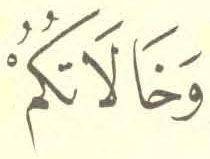 وَخَالَاتُكُمْ